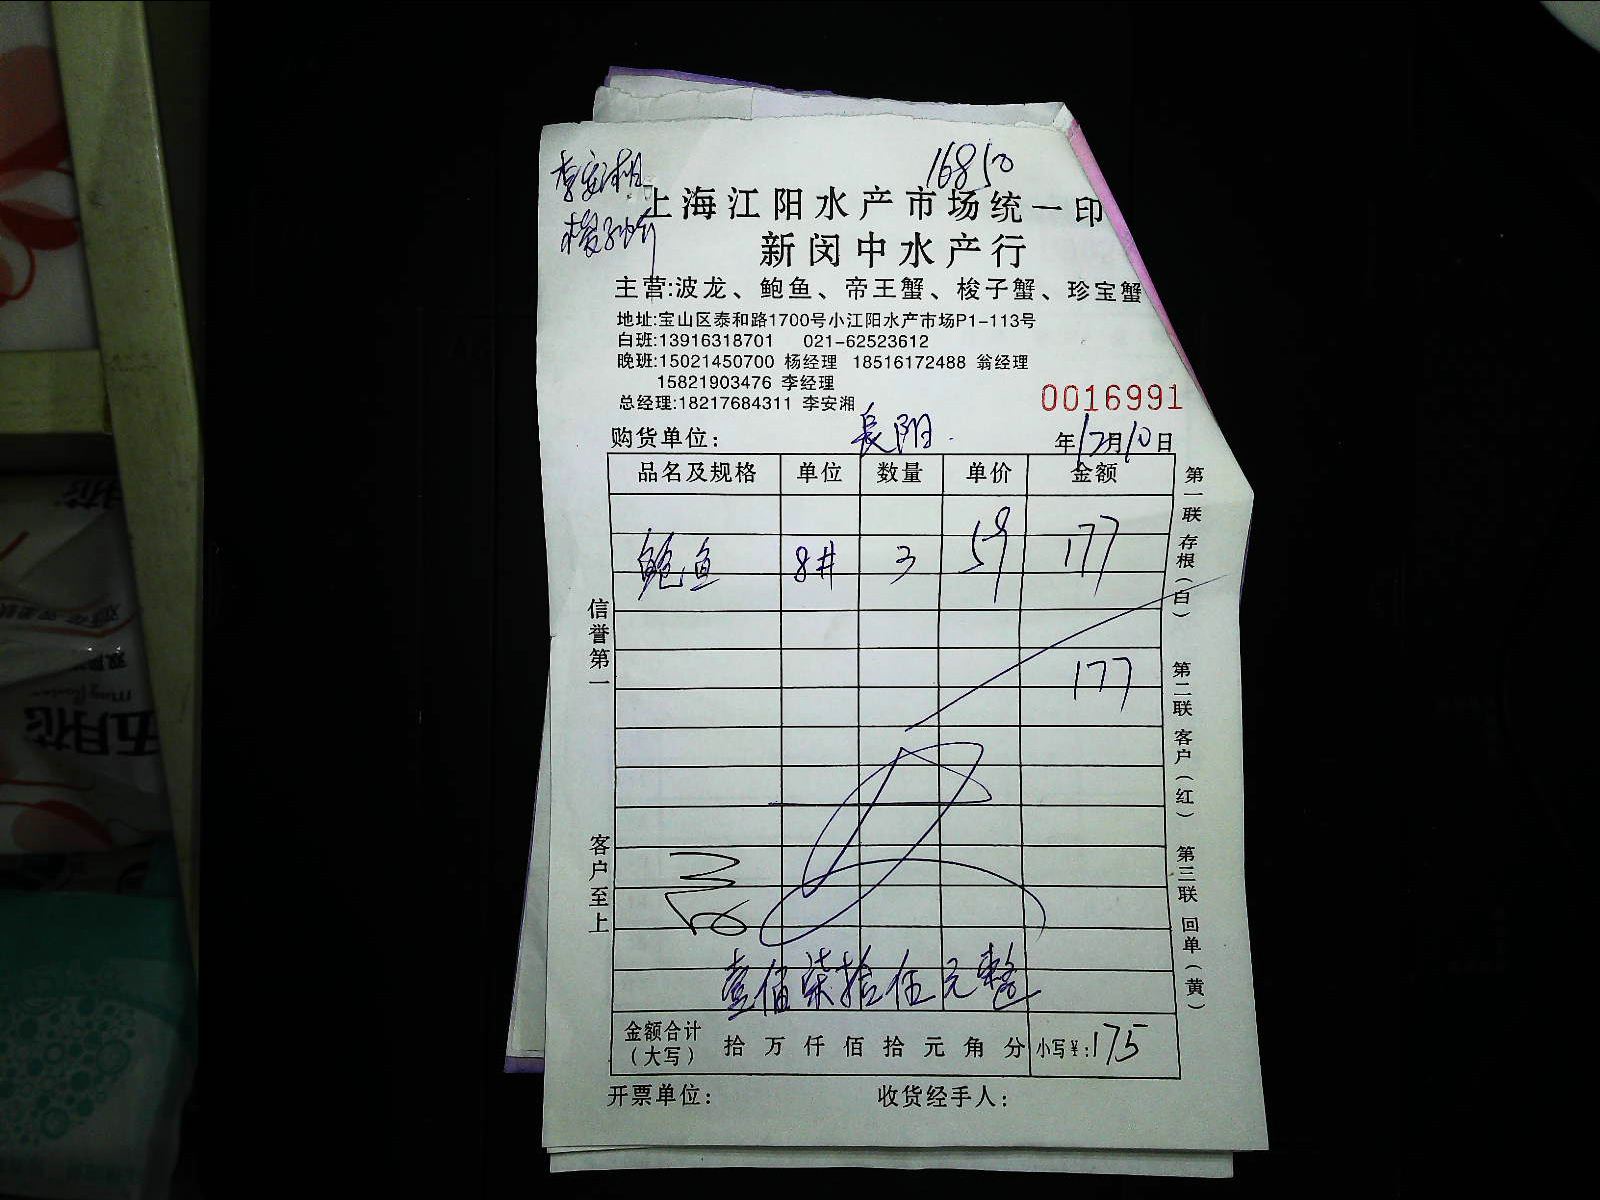 李安湘
16850
上海江阳水产市场统一印
新闵中水产行
主营:波龙、鲍鱼、帝王蟹、梭子蟹、珍宝蟹
地址:宝山区泰和路1700号小江阳水产市场P1-113号
白班:13916318701 021-62523612
晚班:15021450700 杨经理 18516172488 翁经理
15821903476 李经理
总经理:18217684311 李安湘
0016991
购货单位: 長阳 年12月10日
品名及规格 单位 数量 单价 金额
鲍鱼 8# 3 59 177
177
壹佰柒拾伍元整
金额合计(大写) 拾 万 仟 佰 拾 元 角 分 小写¥:175
开票单位: 收货经手人:
信誉第一
客户至上
第一联 存根(白)
第二联 客户(红)
第三联 回单(黄)
五月花